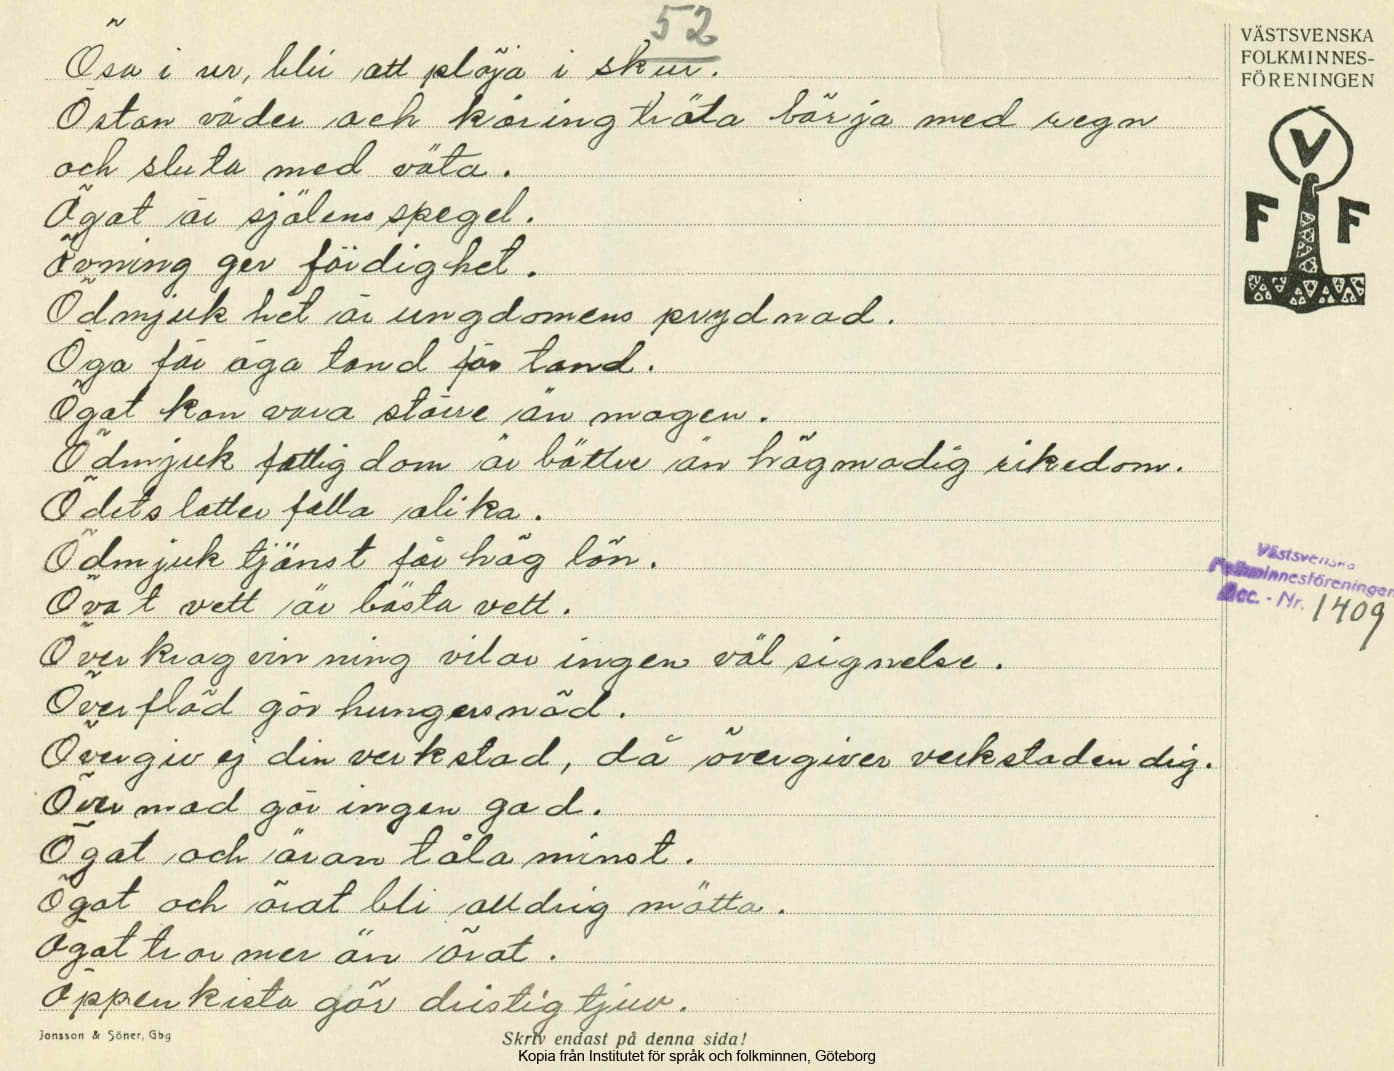 52
Ösa i ur, bli att plöja i skur.
Östan väder och käringträta börja med regn
och sluta med väta.
Ögat är själens spegel.
Övning ger färdighet.
Ödmjukhet är ungdomens prydnad.
Öga för öga tand för tand.
Ögat kan vara större än magen.
Ödmjuk fattigdom är bättre än högmodig rikedom.
Ödets lotter falla olika.
Ödmjuk tjänst får hög lön.
Övat vett är bästa vett.
Överkrag vinning vilar ingen välsignelse.
Överflöd gör hungersnöd.
Övergiv ej din verkstad, då övergiver verkstaden dig.
Övermod gör ingen god.
Ögat och äran tåla minst.
Ögat och örat bli alldrig mätta.
Ögat tror mer än örat.
Öppen kista gör dristig tjuv.
Jonsson & Söner, Gbg
Skriv endast på denna sida!
Kopia från Institutet för språk och folkminnen, Göteborg
VÄSTSVENSKA
FOLKMINNES-
FÖRENINGEN
V
F F
Västsvenska
Folkminnesföreningen
Acc. - Nr. 1409